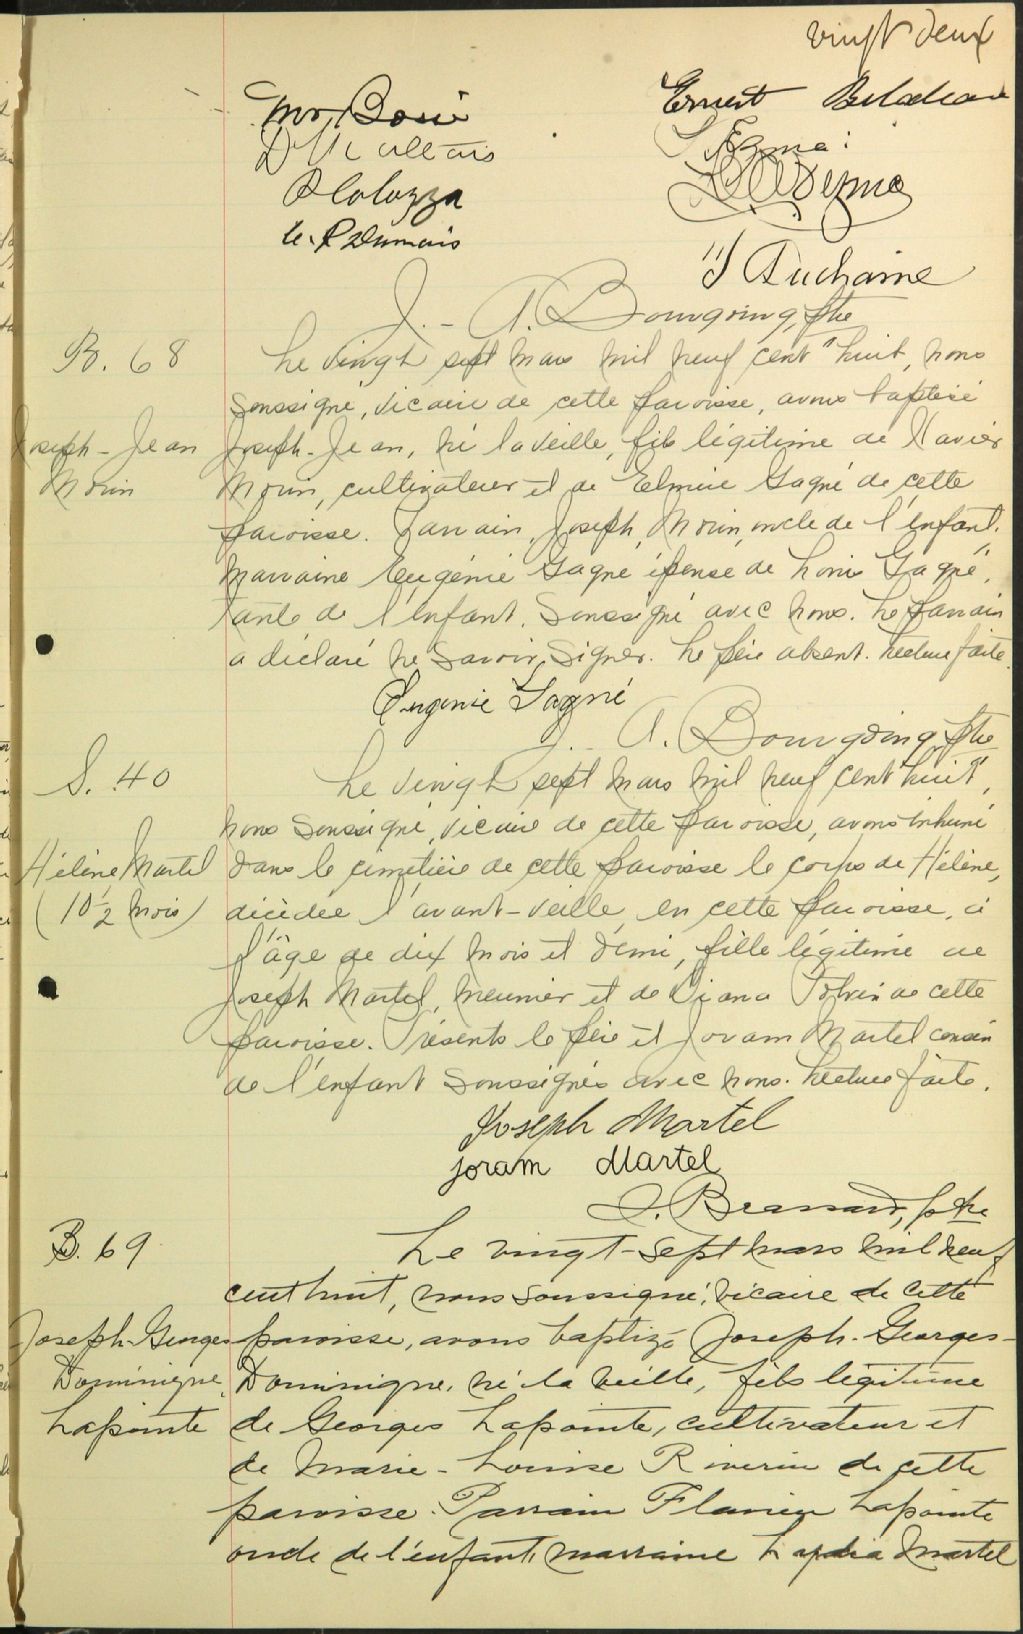 vingt deux
Ernest
C. P. Dumais
J Duchaine
J. - A. Bourgoing, ptre
B. 68
Le vingt sept mars mil neuf cent "huit, nous
soussigné, vicaire de cette paroisse, avons baptisé
Joseph-Jean
Joseph-Jean, né la veille, fils légitime de Xavier
Morin
Morin, cultivateur et de Elmire Gagné de cette
paroisse. Parrain, Joseph Morin, oncle de l'enfant.
Marraine Eugénie Gagné épouse de Louis Gagné,
tante de l'enfant, soussigné avec nous. Le parrain
a déclaré ne savoir signer. Le père absent. Lecture faite.
Eugenie Gagné
J. - A. Bourgoing, ptre
S. 40
Le vingt sept mars mil neuf cent "huit",
nous soussigné, vicaire de cette paroisse, avons inhumé
Hélène Martel
dans le cimetière de cette paroisse le corps de Hélène,
(10 1/2 mois)
décédée l'avant-veille en cette paroisse, à
l'âge de dix mois et demi, fille légitime de
Joseph Martel, meunier et de Diana Potvin de cette
paroisse. Présents le père et Joram Martel cousin
de l'enfant soussignés avec nous. Lecture faite.
Joseph Martel
Joram Martel
Brassard, ptre
B. 69
Le vingt-sept mars mil neuf
cent huit, nous soussigné, vicaire de cette
Joseph-Georges
paroisse, avons baptizé Joseph-Georges-
Dominique
Dominique, né la veille, fils légitime
Lapointe
de Georges Lapointe, cultivateur et
de Marie-Louise Riverin de cette
paroisse. Parrain Flavien Lapointe
oncle de l'enfant, marraine Lydia Martel